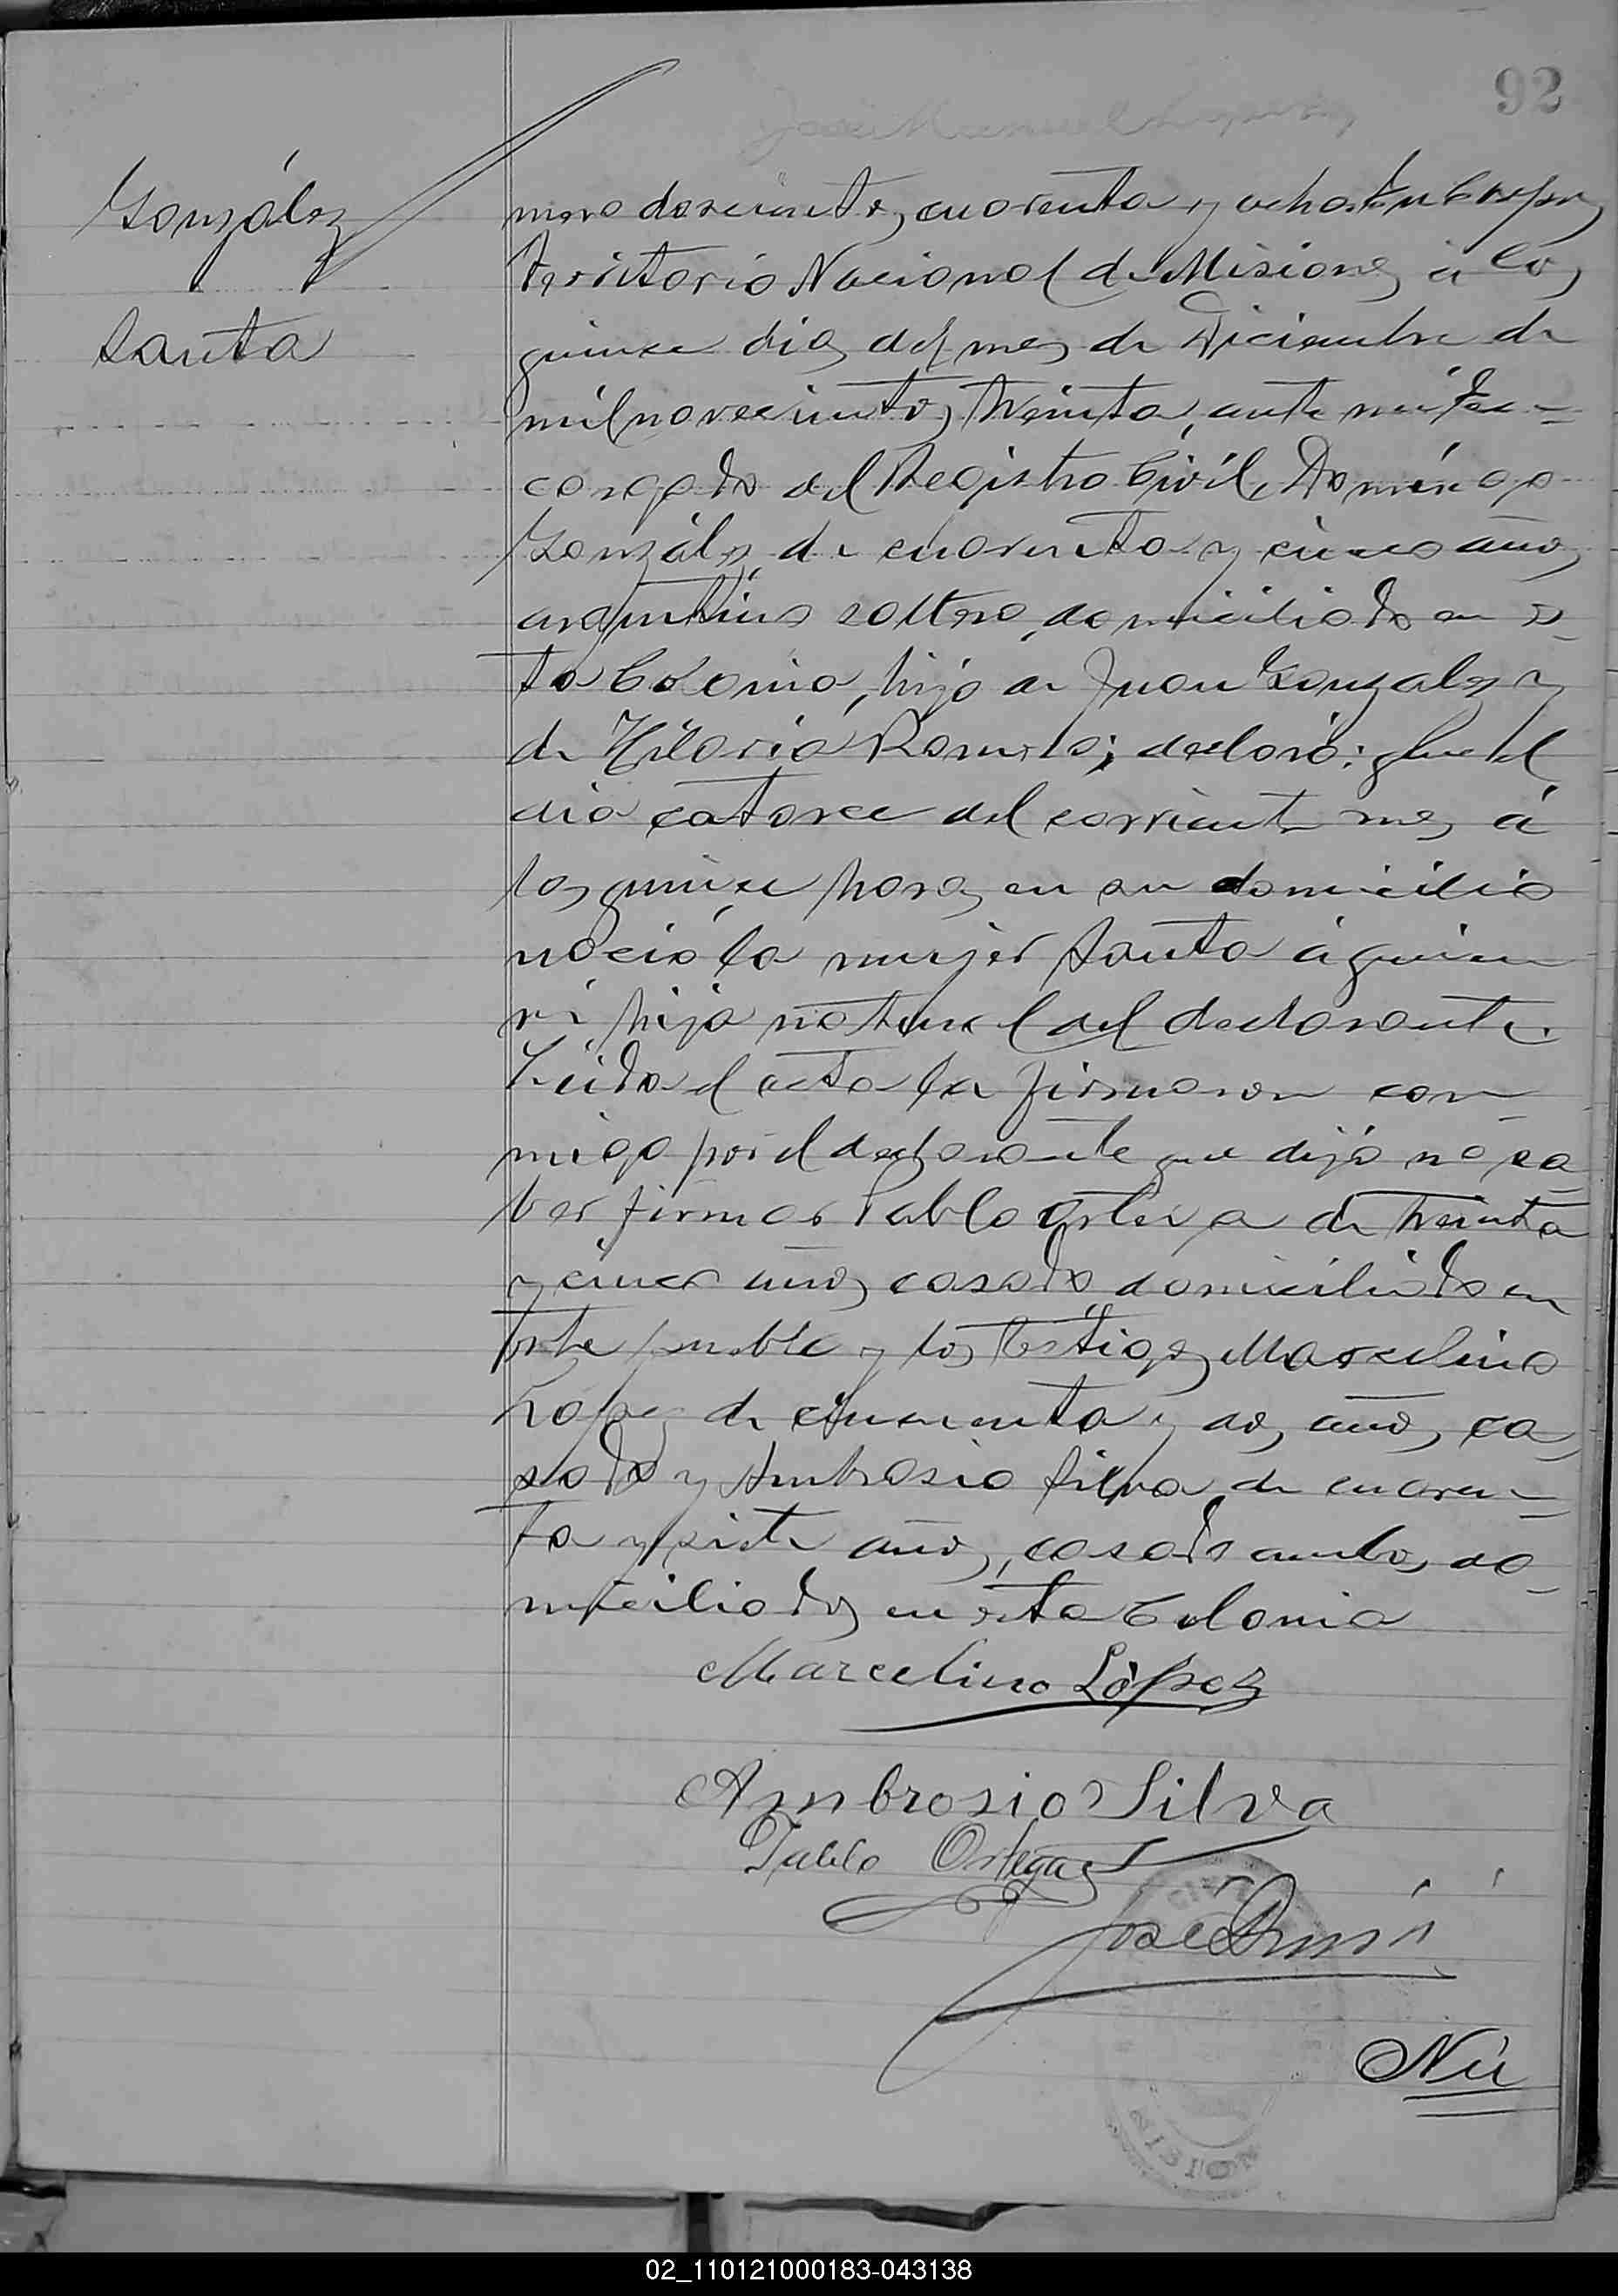 92
González
Santa
mero doscientos cuarenta y ocho. En
Territorio Nacional de Misiones á los
quince dias del mes de Diciembre de
mil novecientos treinta, ante mí En-
cargado del Registro Civil, Domingo
González de cuarenta y cinco años
argentino soltero, domiciliado en es-
ta Colonia, hijo de Juan Gonzalez y
de Hilaria Romero; declaró: Que el
dia catorce del corriente mes á
las quince horas en su domicilio
nació la mujer Santa á quien
vi hija natural del declarante.
Leida el acta la firmaron con-
migo por el declarante que dijó no sa-
ber firmar Pablo Ortega de treinta
y cinco años casado domiciliado en
este pueblo y los testigos Marcelino
López de cincuenta y dos años, ca-
sado y Ambrosio Silva de cuaren-
ta y siete años, casado ambos do-
miciliados en esta Colonia
Marcelino López
Ambrosio Silva
Pablo Ortega
José
Nú
02_110121000183-043138